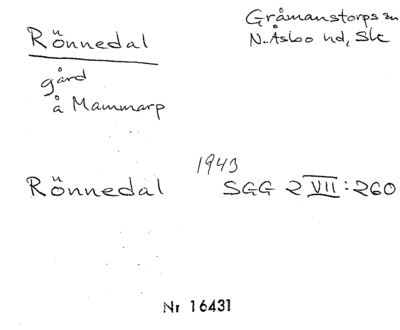 Rönnedal
Gråmanstorps sn
N. Åsbo hd, Sk
gård
å Mammarp
1943
Rönnedal SGG 2 VII: 260
Nr 16431